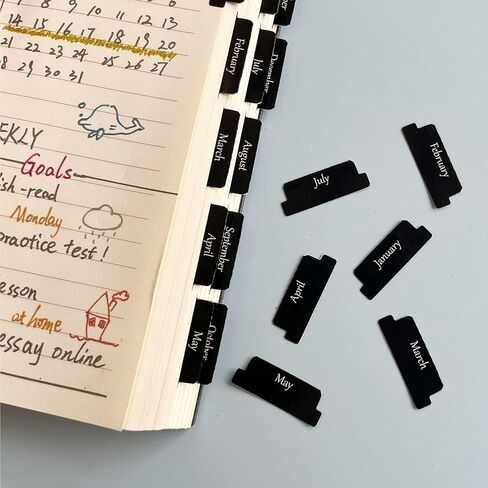 12 13
14 15 16 17 18 19 20
21 22 23 24 25 26 27
28 29 30 31
EEKLY
Goals
ish-read
Monday
practice test!
esson
at home
essay online
February
July
December
March
August
April
September
May
October
July
February
January
April
March
May